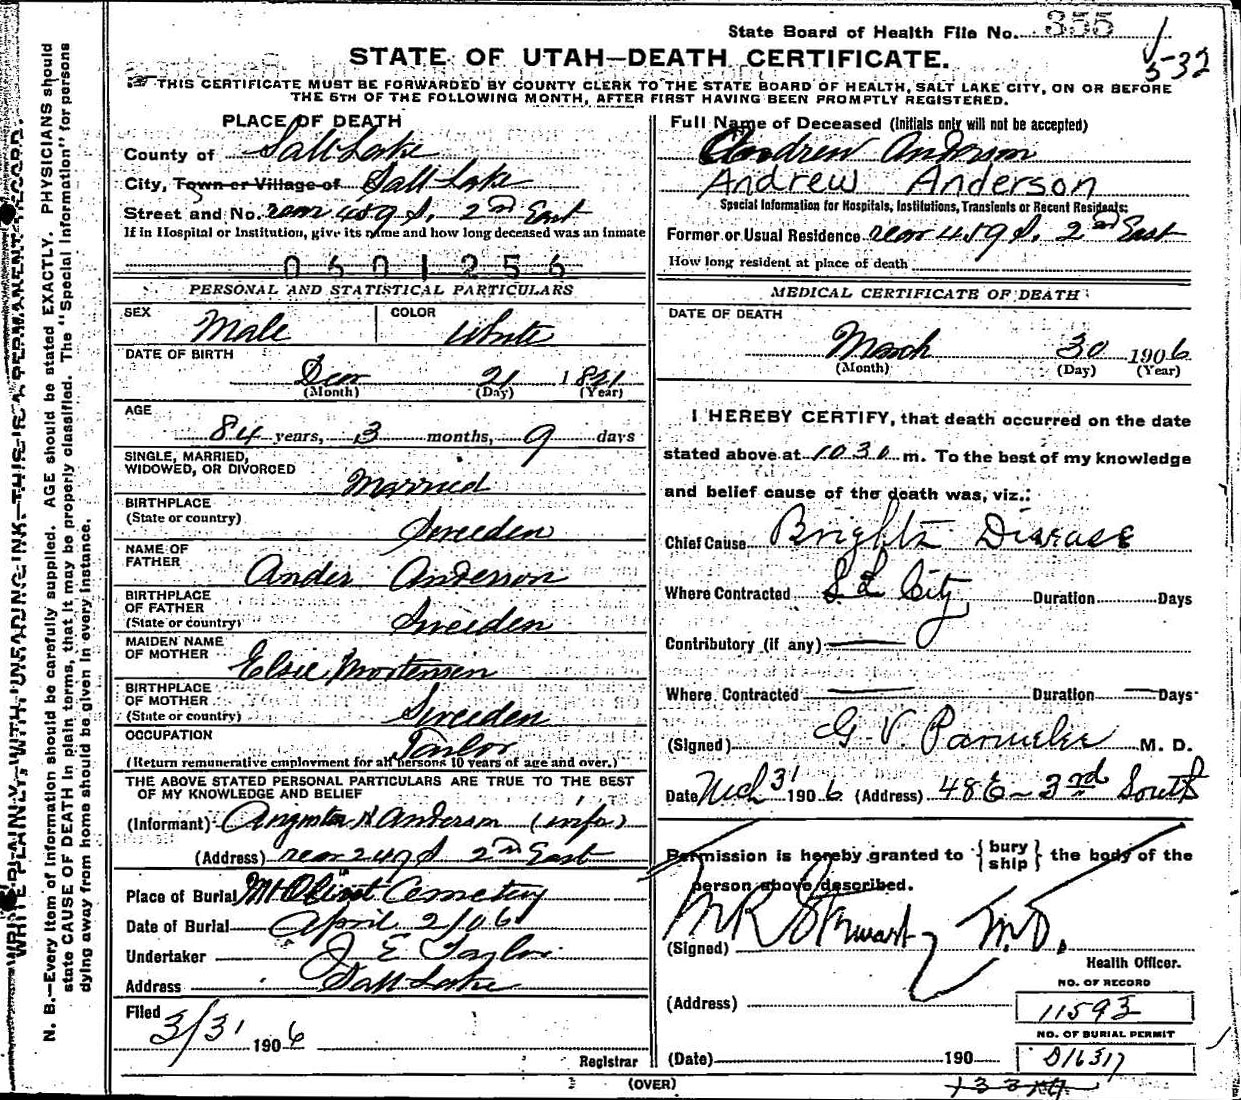 State Board of Health File No. 355
5-32
STATE OF UTAH—DEATH CERTIFICATE.
THIS CERTIFICATE MUST BE FORWARDED BY COUNTY CLERK TO THE STATE BOARD OF HEALTH, SALT LAKE CITY, ON OR BEFORE
THE 5TH OF THE FOLLOWING MONTH, AFTER FIRST HAVING BEEN PROMPTLY REGISTERED.
WRITE PLAINLY, WITH UNFADING INK—THIS IS A PERMANENT RECORD.
N. B.—Every item of information should be carefully supplied. AGE should be stated EXACTLY. PHYSICIANS should
state CAUSE OF DEATH in plain terms, that it may be properly classified. The "Special Information" for persons
dying away from home should be given in every instance.
PLACE OF DEATH
County of Salt Lake
City, Town or Village of Salt Lake
Street and No. rear 459 S. 2nd East
If in Hospital or Institution, give its name and how long deceased was an inmate
0601256
PERSONAL AND STATISTICAL PARTICULARS
SEX Male COLOR White
DATE OF BIRTH
Decr 21 1821
(Month) (Day) (Year)
AGE
84 years, 3 months, 9 days
SINGLE, MARRIED,
WIDOWED, OR DIVORCED
Married
BIRTHPLACE
(State or country) Sweeden
NAME OF
FATHER Ander Anderson
BIRTHPLACE
OF FATHER
(State or country) Sweeden
MAIDEN NAME
OF MOTHER Elsie Mortensen
BIRTHPLACE
OF MOTHER
(State or country) Sweeden
OCCUPATION Tailor
(Return remunerative employment for all persons 10 years of age and over.)
THE ABOVE STATED PERSONAL PARTICULARS ARE TRUE TO THE BEST
OF MY KNOWLEDGE AND BELIEF
(Informant) Anderson (wife)
(Address) rear 247 S 2nd East
Place of Burial Mt Olivet Cemetery
Date of Burial April 2/06
Undertaker J E Taylor
Address Salt Lake
Filed
3/31 1906
Registrar
Full Name of Deceased (Initials only will not be accepted)
Andrew Anderson
Andrew Anderson
Special Information for Hospitals, Institutions, Transients or Recent Residents:
Former or Usual Residence rear 459 S. 2nd East
How long resident at place of death
MEDICAL CERTIFICATE OF DEATH
DATE OF DEATH
March 30 1906
(Month) (Day) (Year)
I HEREBY CERTIFY, that death occurred on the date
stated above at 1030 m. To the best of my knowledge
and belief cause of the death was, viz.:
Chief Cause Brights Disease
Where Contracted S L City Duration Days
Contributory (if any)
Where Contracted Duration Days
(Signed) G. V. M. D.
Date Mch 31 1906 (Address) 48 E — 3rd South
Permission is hereby granted to {bury ship} the body of the
person above described.
(Signed) M R Stewart M.D.
Health Officer.
(Address)
NO. OF RECORD
11593
NO. OF BURIAL PERMIT
(Date) 190 D16317
(OVER)